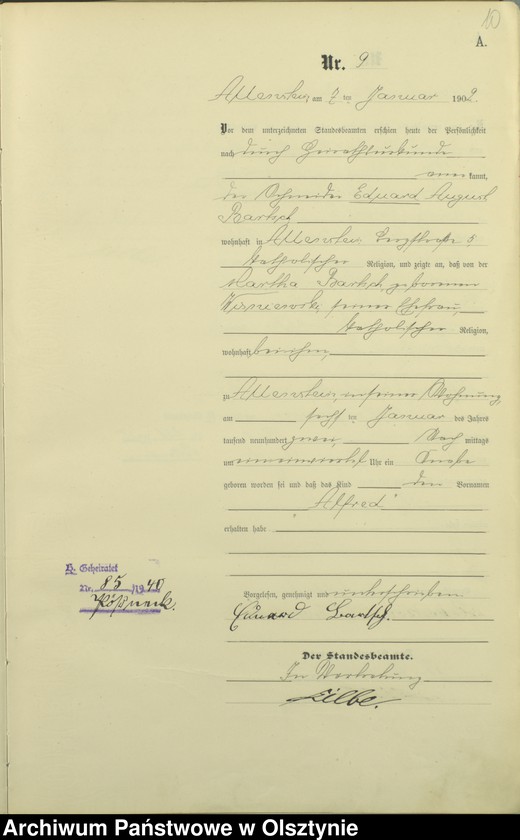 10
A.
Nr. 9
Allenstein am 7 ten Januar 1902
Vor dem unterzeichneten Standesbeamten erschien heute der Persönlichkeit
nach durch Heirathsurkunde
anerkannt,
der Schneider Eduard August
Bartsch
wohnhaft in Allenstein, Bergstraße 5,
katholischer Religion, und zeigte an, daß von der
Martha Bartsch, geborenen
seiner Ehefrau,
katholischer Religion,
wohnhaft bei ihm,
zu Allenstein, in seiner Wohnung,
am sechs ten Januar des Jahres
tausend neunhundert zwei, Nach mittags
um Uhr ein Knabe
geboren worden sei und daß das Kind den Vornamen
"Alfred"
erhalten habe
Vorgelesen, genehmigt und unterschrieben
Eduard Bartsch.
Der Standesbeamte.
In Vertretung
Geheiratet
Nr. 85/1940
Pößneck.
Archiwum Państwowe w Olsztynie